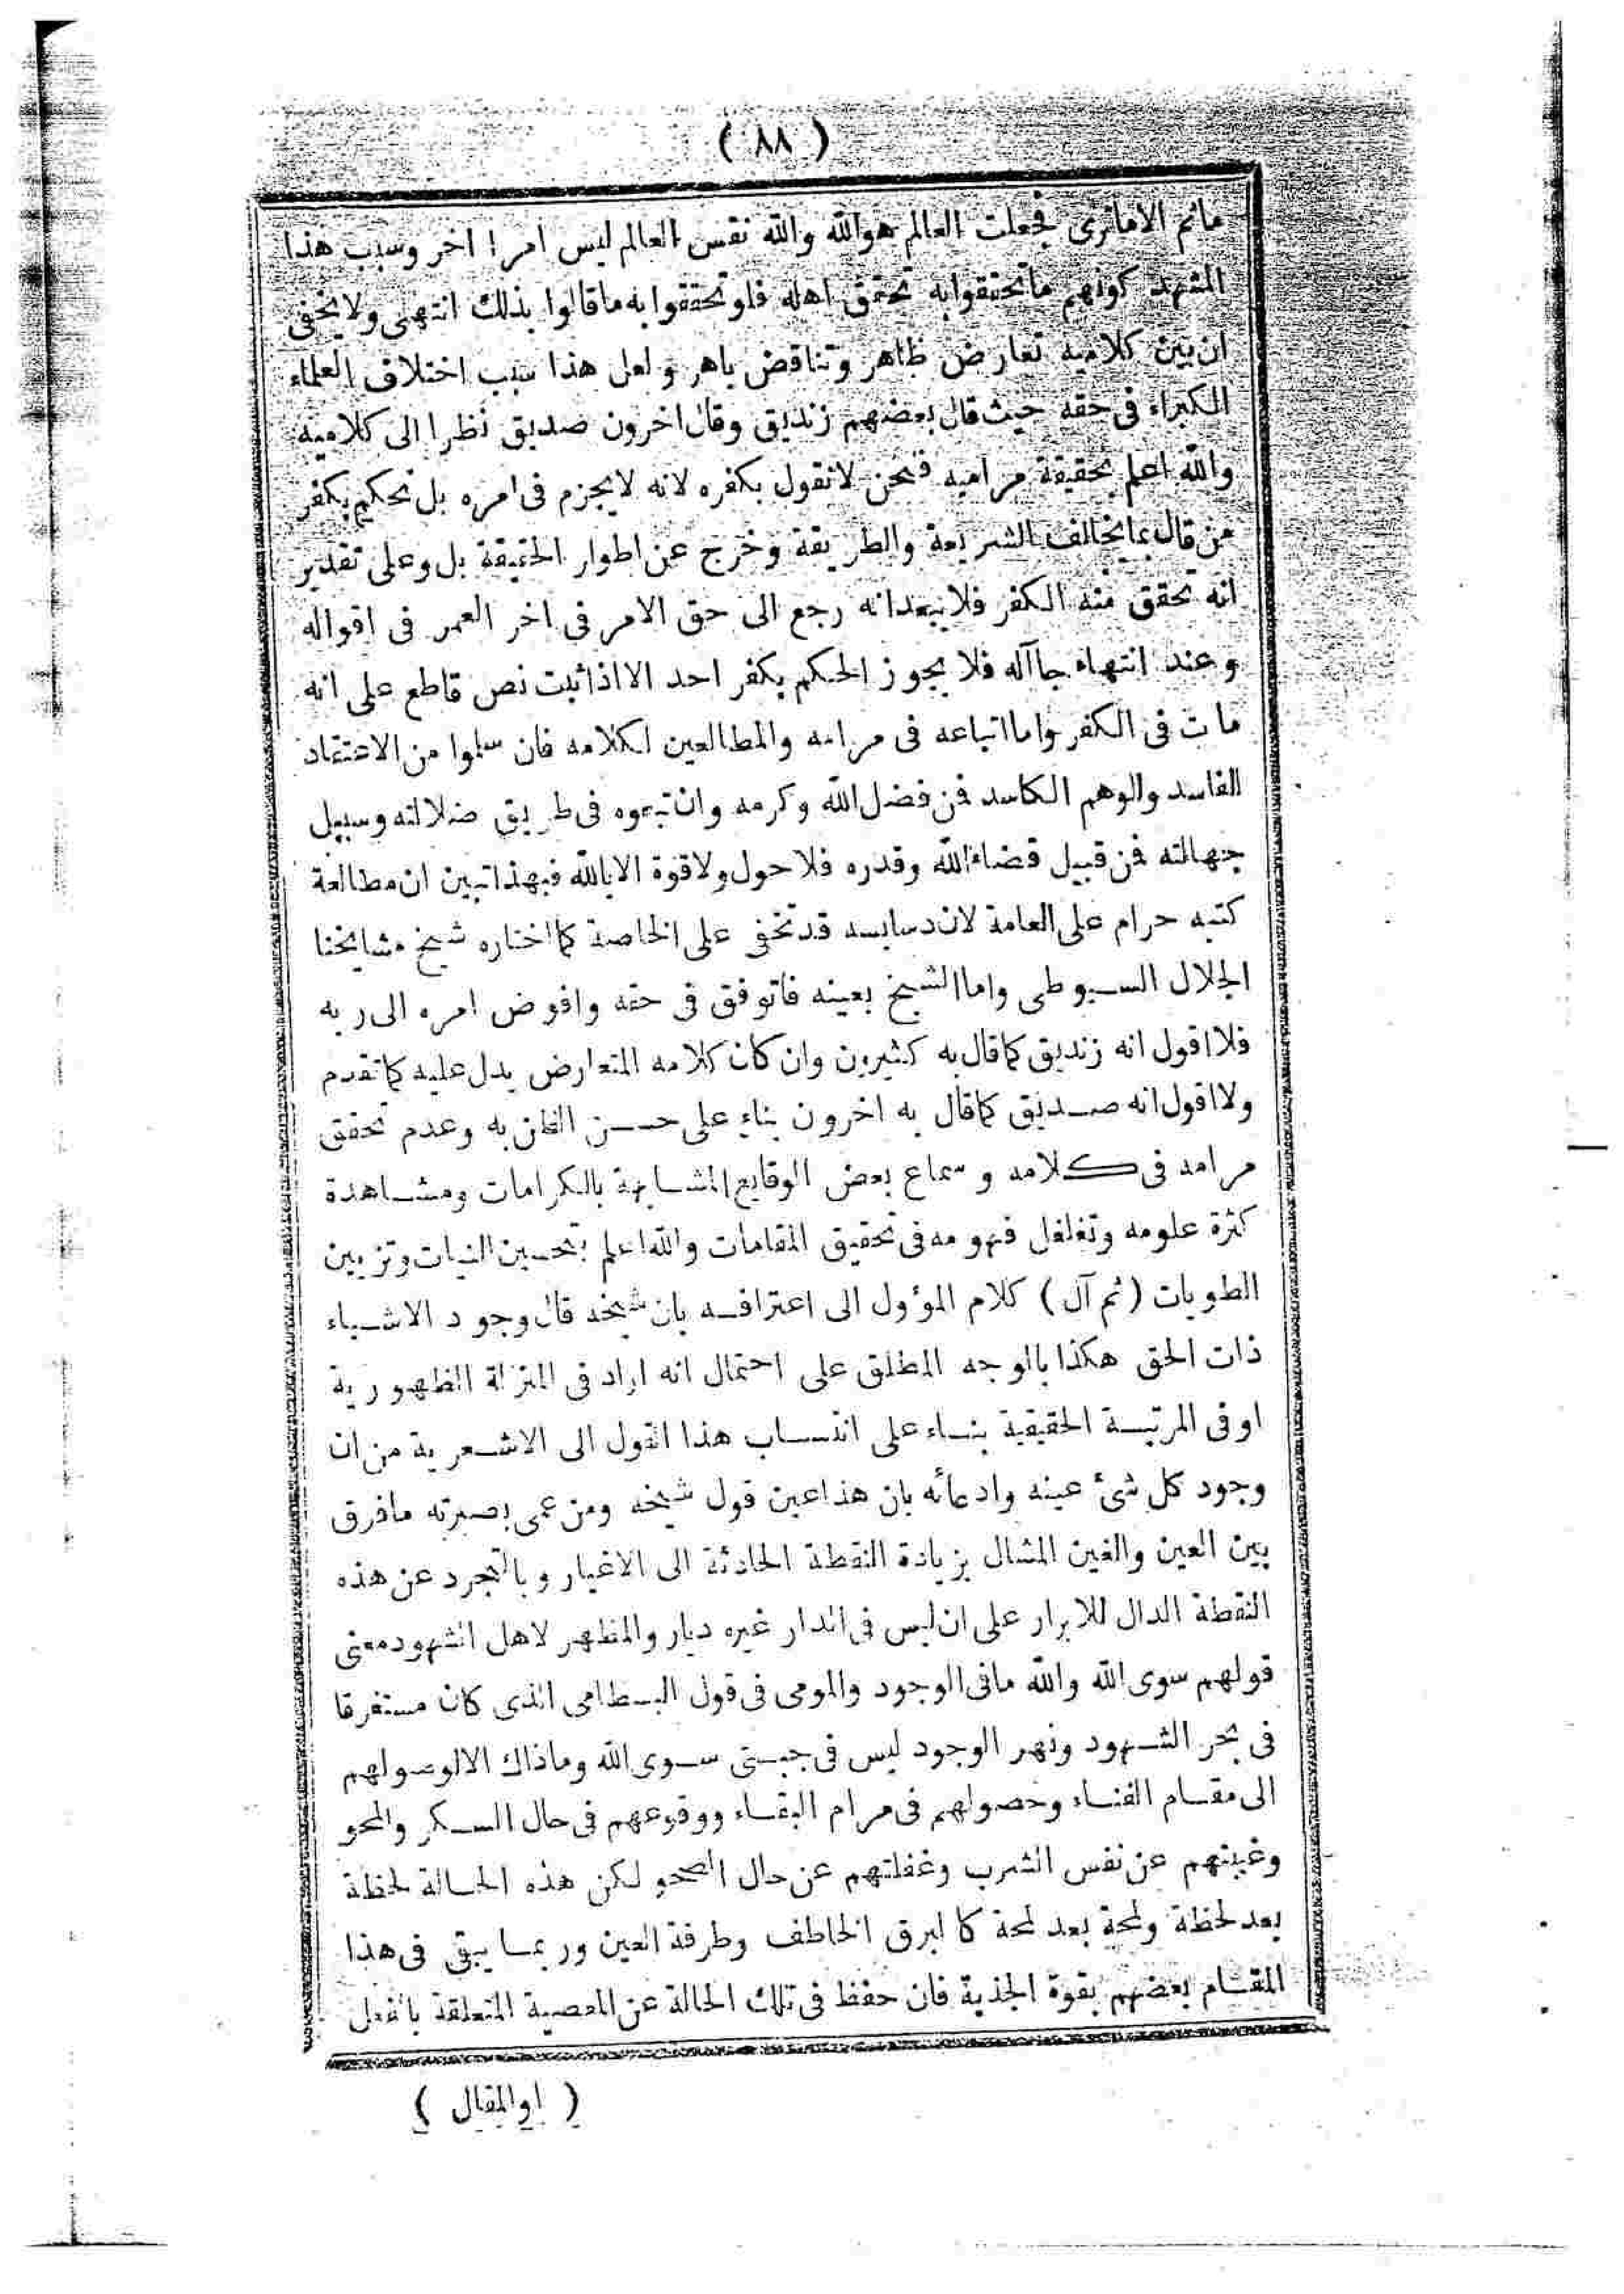 ( ٨٨ )
ماثم الاماترى فجعلت العالم هوالله والله نفس العالم ليس امرا اخر وسبب هذا
المشهد كونهم ماتحققوابه تحقق اهله فلو تحققوا به ماقالوا بذلك انتهى ولايخفى
ان بين كلاميه تعارض ظاهر وتناقض باهر ولعل هذا سبب اختلاف العلماء
الكبراء فى حقه حيث قال بعضهم زنديق وقال اخرون صديق نظرا الى كلاميه
والله اعلم بحقيقة مراميه فنحن لانقول بكفره لانه لايجزم فى امره بل نحكم بكفر
من قال بمايخالف الشريعة والطريقة وخرج عن اطوار الحقيقة بل وعلى تقدير
انه تحقق منه الكفر فلايبعدانه رجع الى حق الامر فى اخر العمر فى اقواله
وعند انتهاء جاآله فلا يجوز الحكم بكفر احد الااذاثبت نص قاطع على انه
مات فى الكفر واما اتباعه فى مرامه والمطالعين لكلامه فان سلوا من الاعتقاد
الفاسد والوهم الكاسد فمن فضل الله وكرمه وان تبعوه فى طريق ضلالته وسبيل
جهالته فمن قبيل قضاءالله وقدره فلاحول ولاقوة الابالله فبهذاتبين ان مطالعة
كتبه حرام على العامة لان دسايسه قدتخفى على الخاصة كمااختاره شيخ مشايخنا
الجلال السيوطى واماالشيخ بعينه فاتوقف فى حقه وافوض امره الى ربه
فلااقول انه زنديق كماقال به كثيرون وان كان كلامه المتعارض يدل عليه كماتقدم
ولااقول انه صديق كماقال به اخرون بناء على حسن الظن به وعدم تحقق
مرامه فى كلامه وسماع بعض الوقايع المشابهة بالكرامات ومشاهدة
كثرة علومه وتغلغل فهومه فى تحقيق المقامات والله اعلم بتحسين النيات وتزيين
الطويات (ثم آل) كلام المؤول الى اعترافه بان شيخه قال وجود الاشياء
ذات الحق هكذا بالوجه المطلق على احتمال انه اراد فى المنزلة الظهورية
اوفى المرتبة الحقيقية بناء على انتساب هذا القول الى الاشعرية من ان
وجود كل شئ عينه وادعائه بان هذاعين قول شيخه ومن عمى بصيرته مافرق
بين العين والغين المشال بزيادة النقطة الحادثة الى الاغيار وبالتجرد عن هذه
النقطة الدال للابرار على ان ليس فى الدار غيره ديار والمظهر لاهل الشهودمعنى
قولهم سوى الله والله مافى الوجود والمومى فى قول البسطامى الذى كان مستغرقا
فى بحر الشهود ونهر الوجود ليس فى جبتى سوى الله وماذاك الالوصولهم
الى مقام الفناء وحصولهم فى مرام البقاء ووقوعهم فى حال السكر والمحو
وغيبتهم عن نفس الشرب وغفلتهم عن حال الصحو لكن هذه الحالة لحظة
بعدلحظة ولمحة بعد لمحة كالبرق الخاطف وطرفة العين وربما يبقى فى هذا
المقام بعضهم بقوة الجذبة فان حفظ فى تلك الحالة عن المعصية المتعلقة بالفعل
( اوالمقال )